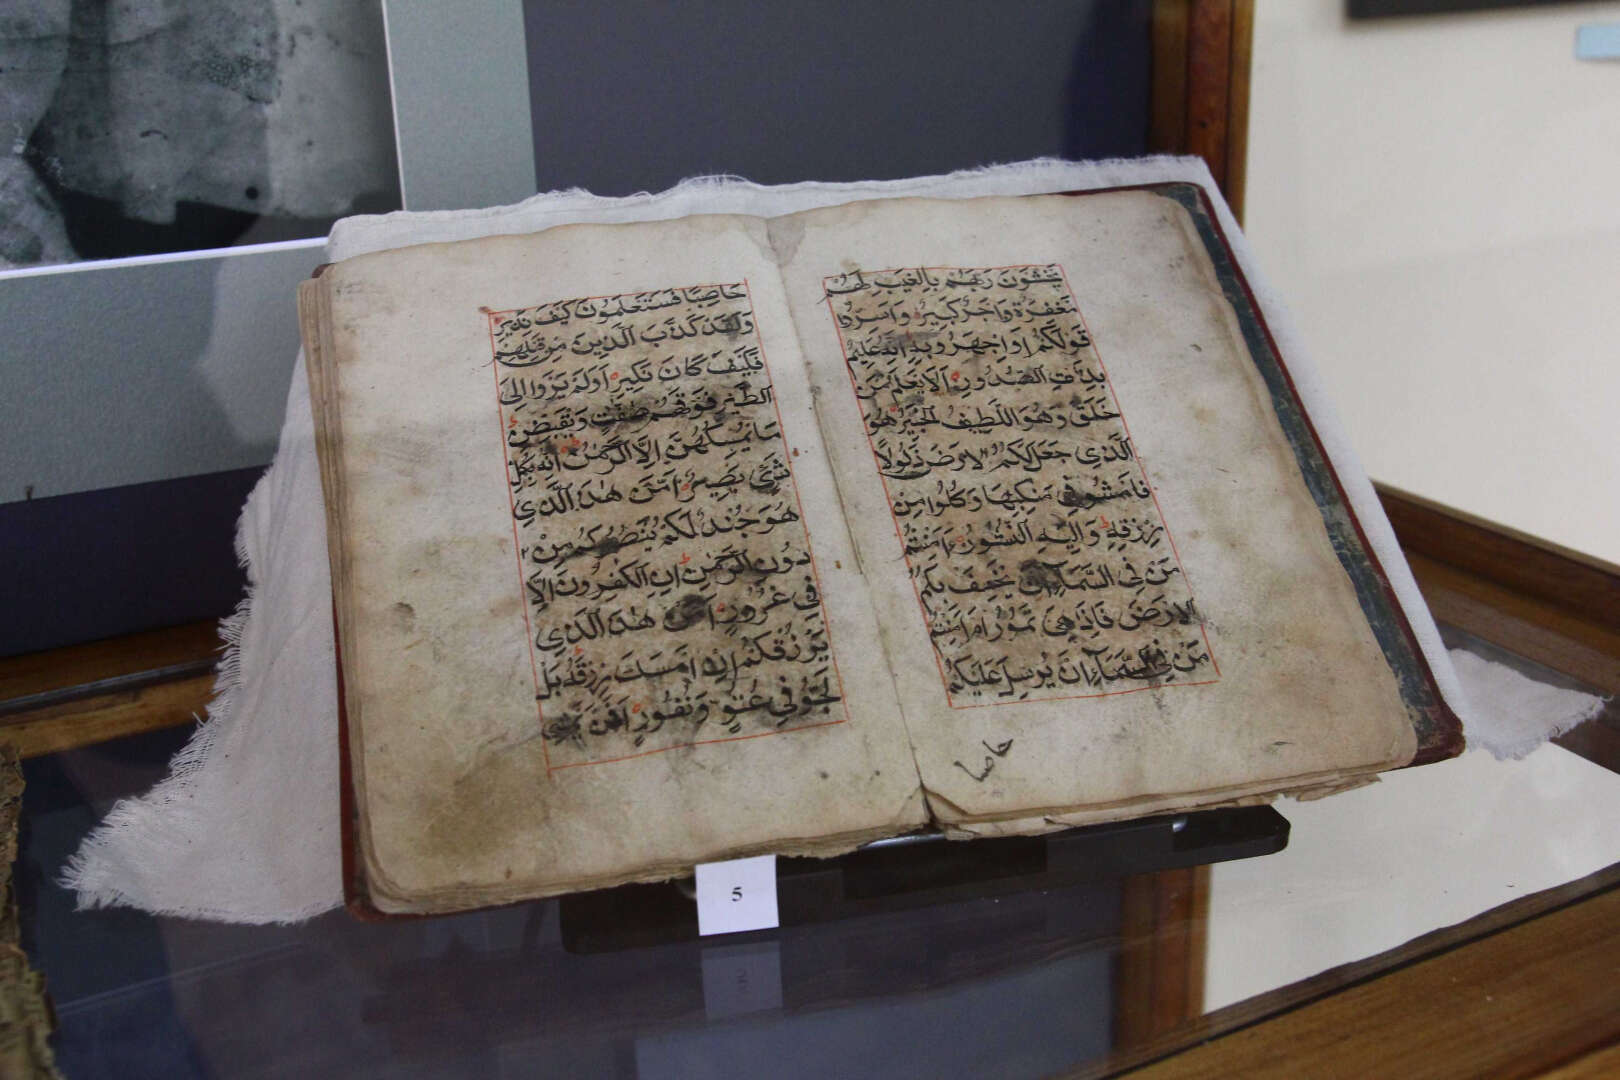 يخشون ربهم بالغيب لهم
مغفرة واجر كبير واسروا
قولكم او اجهروا به انه عليم
بذات الصدور الا يعلم من
خلق وهو اللطيف الخبير هو
الذي جعل لكم الارض ذلولا
فامشوا في مناكبها وكلوا من
رزقه واليه النشور ءامنتم
من في السماء ان يخسف بكم
الارض فاذا هي تمور ام امنتم
من في السماء ان يرسل عليكم
حاصبا
حاصبا فستعلمون كيف نذير
ولقد كذب الذين من قبلهم
فكيف كان نكير اولم يروا الى
الطير فوقهم صفت ويقبضن
ما يمسكهن الا الرحمن انه بكل
شيء بصير امن هذا الذي
هو جند لكم ينصركم من
دون الرحمن ان الكفرون الا
في غرور امن هذا الذي
يرزقكم ان امسك رزقه بل
لجوا في عتو ونفور افمن يمشي
5